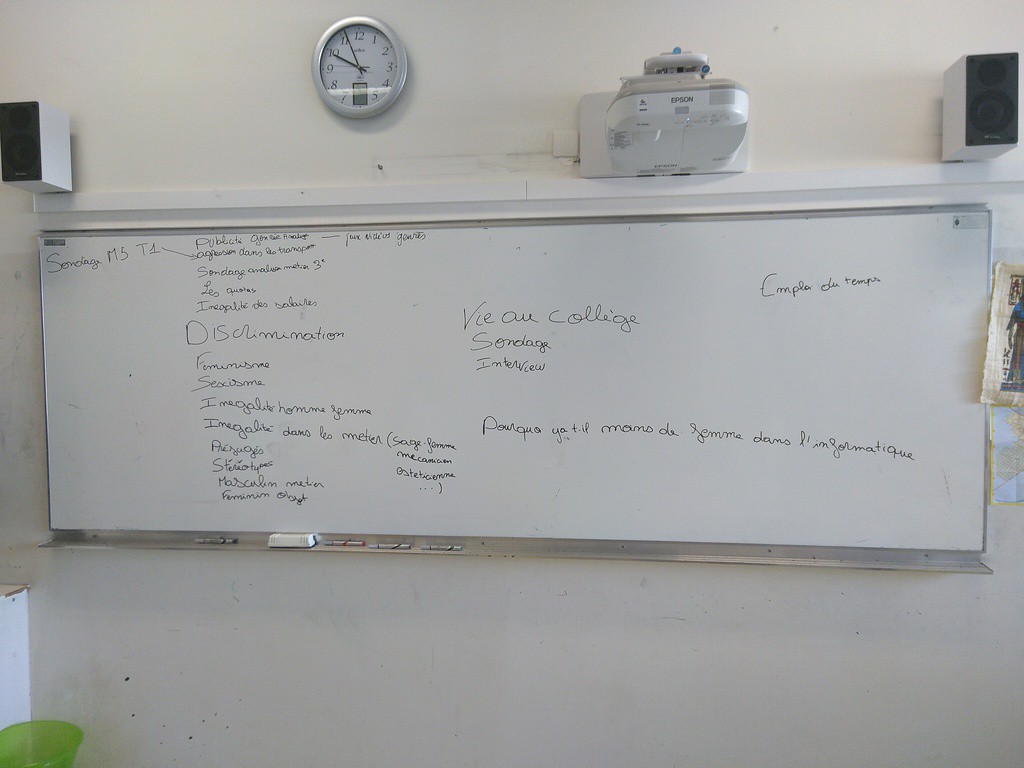 12
11
1
2
10
9
3
8
4
7
5
EPSON
EPSON
Sondage M5 T1
Publicité — jeux vidéos genrés
agression dans les transport
Sondage métier 3e
Les quotas
Inegalité des salaires
Discrimination
Feminisme
Sexisme
Inegalité homme femme
Inegalité dans les métier (sage-femme
mecanicien
esteticienne
...)
Préjugés
Stéréotypes
Masculin metier
Feminin objet
Vie au collège
Sondage
Interview
Emploi du temps
Pourquoi ya t-il moins de femme dans l'informatique